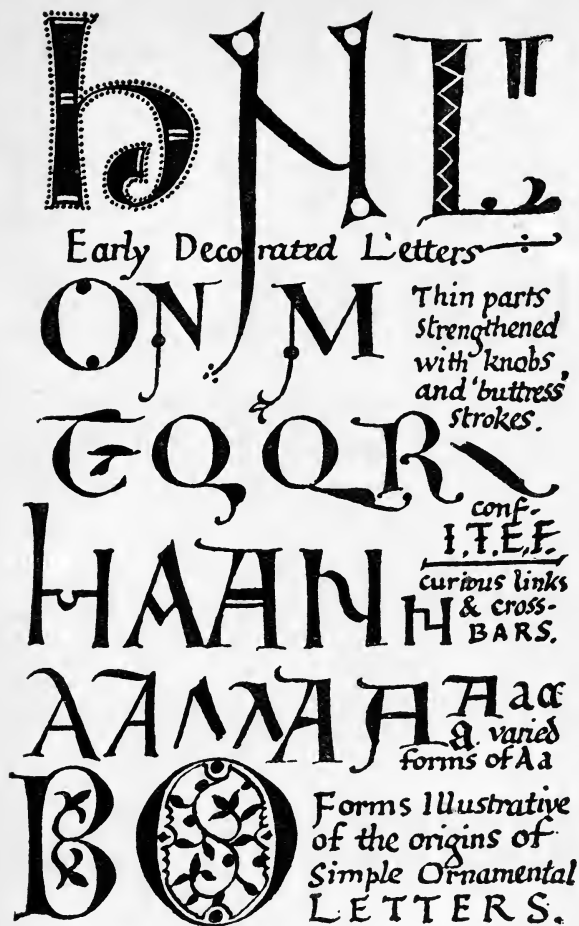 h N L "
Early Decorated Letters
O N M
Thin parts
strengthened
with 'knobs'
and 'buttress'
strokes.
T Q Q R
conf-
I.T.E.F.
H A A N
curious links
H & cross-
BARS.
A A A A A A A a α
a varied
forms of A a
B O
Forms Illustrative
of the origins of
Simple Ornamental
LETTERS.